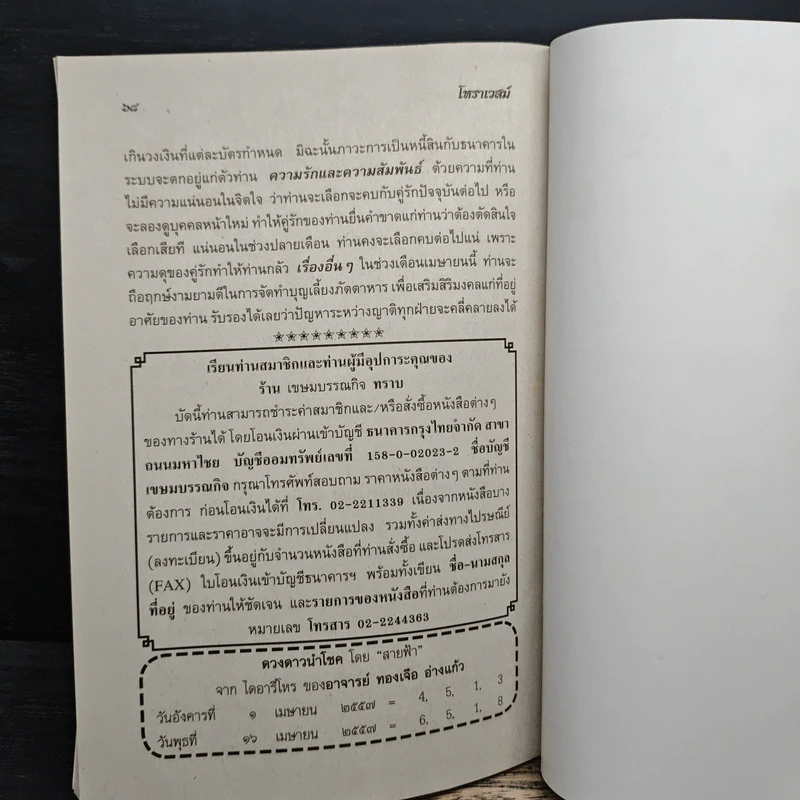 ๖๘
โหราเวสม์
เกินวงเงินที่แต่ละบัตรกำหนด มิฉะนั้นภาวะการเป็นหนี้สินกับธนาคารใน
ระบบจะตกอยู่แก่ตัวท่าน ความรักและความสัมพันธ์ ด้วยความที่ท่าน
ไม่มีความแน่นอนในจิตใจ ว่าท่านจะเลือกจะคบกับคู่รักปัจจุบันต่อไป หรือ
จะลองดูบุคคลหน้าใหม่ ทำให้คู่รักของท่านยื่นคำขาดแก่ท่านว่าต้องตัดสินใจ
เลือกเสียที แน่นอนในช่วงปลายเดือน ท่านคงจะเลือกคบต่อไปแน่ เพราะ
ความดุของคู่รักทำให้ท่านกลัว เรื่องอื่นๆ ในช่วงเดือนเมษายนนี้ ท่านจะ
ถือฤกษ์งามยามดีในการจัดทำบุญเลี้ยงภัตตาหาร เพื่อเสริมสิริมงคลแก่ที่อยู่
อาศัยของท่าน รับรองได้เลยว่าปัญหาระหว่างญาติทุกฝ่ายจะคลี่คลายลงได้
เรียนท่านสมาชิกและท่านผู้มีอุปการะคุณของ
ร้าน เขษมบรรณกิจ ทราบ
บัดนี้ท่านสามารถชำระค่าสมาชิกและ/หรือสั่งซื้อหนังสือต่างๆ
ของทางร้านได้ โดยโอนเงินผ่านเข้าบัญชี ธนาคารกรุงไทยจำกัด สาขา
ถนนมหาไชย บัญชีออมทรัพย์เลขที่ 158-0-02023-2 ชื่อบัญชี
เขษมบรรณกิจ กรุณาโทรศัพท์สอบถาม ราคาหนังสือต่างๆ ตามที่ท่าน
ต้องการ ก่อนโอนเงินได้ที่ โทร. 02-2211339 เนื่องจากหนังสือบาง
รายการและราคาอาจจะมีการเปลี่ยนแปลง รวมทั้งค่าส่งทางไปรษณีย์
(ลงทะเบียน) ขึ้นอยู่กับจำนวนหนังสือที่ท่านสั่งซื้อ และโปรดส่งโทรสาร
(FAX) ใบโอนเงินเข้าบัญชีธนาคารฯ พร้อมทั้งเขียน ชื่อ-นามสกุล
ที่อยู่ ของท่านให้ชัดเจน และรายการของหนังสือที่ท่านต้องการมายัง
หมายเลข โทรสาร 02-2244363
ดวงดาวนำโชค โดย "สายฟ้า"
จาก ไดอารี่โหร ของอาจารย์ ทองเจือ อ่างแก้ว
วันอังคารที่ ๑ เมษายน ๒๕๕๗ = 4, 5, 1, 3
วันพุธที่ ๑๖ เมษายน ๒๕๕๗ = 6, 5, 1, 8